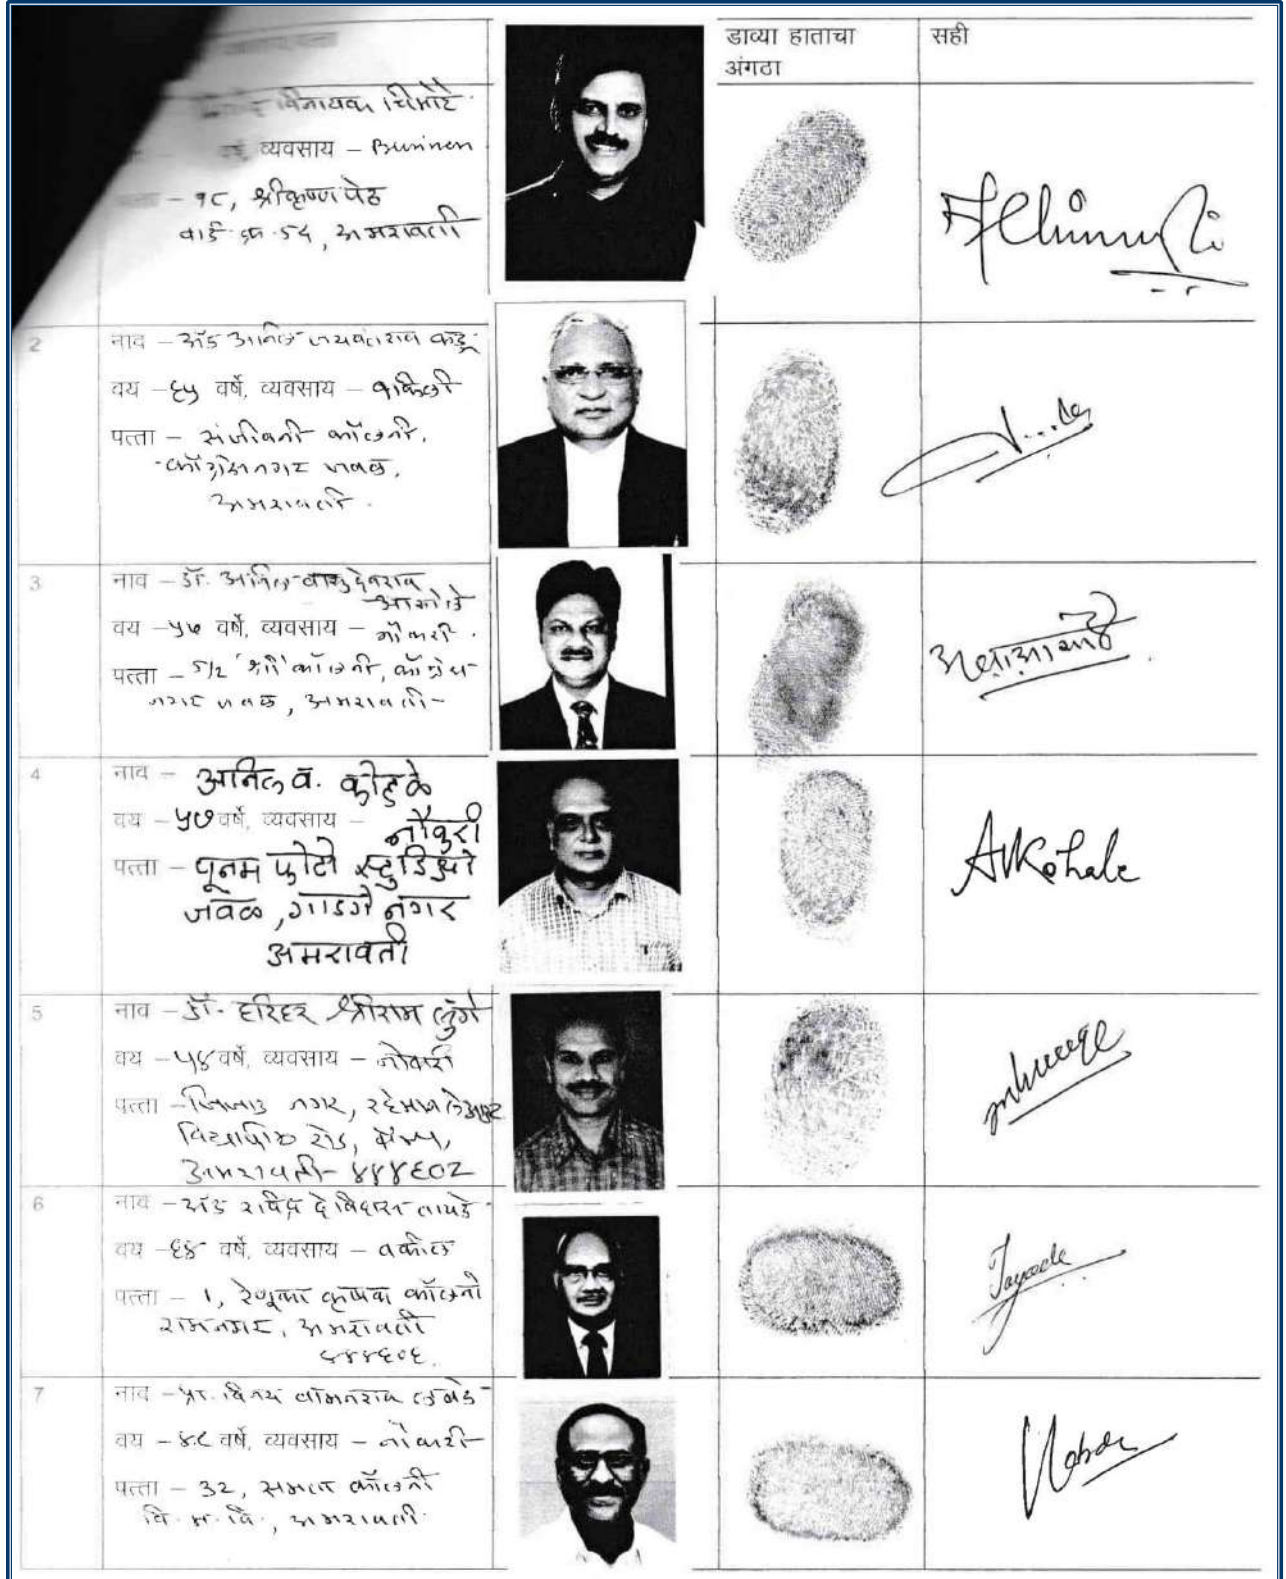 डाव्या हाताचा
अंगठा
सही
विनायक चिमोटे
वर्षे, व्यवसाय – Business
– १८, श्रीकृष्ण पेठ
वार्ड क्र. ५४, अमरावती
2
नाव – अ‍ॅड अनिल जयवंतराव कडू
वय – ६५ वर्षे, व्यवसाय – वकिली
पत्ता – संजीवनी कॉलनी,
काँग्रेसनगर जवळ,
अमरावती.
3
नाव – डॉ. अनिल वासुदेवराव
आसोले
वय – ५७ वर्षे, व्यवसाय – नौकरी.
पत्ता – 5/2 'श्री' कॉलनी, काँग्रेस
नगर जवळ, अमरावती
4
नाव – अनिल व. कोहळे
वय – ५७ वर्षे, व्यवसाय –
नौकरी
पत्ता – पूनम फोटो स्टुडिओ
जवळ, गाडगे नगर
अमरावती
AVKohale
5
नाव – डॉ. हरिहर श्रीराम लुंगे
वय – ५४ वर्षे, व्यवसाय – नोकरी
पत्ता – जिजाऊ नगर, रहेमान लेआऊट
विद्यापीठ रोड, कॅम्प,
अमरावती – ४४४६०२
6
नाव – अ‍ॅड राविंद्र देविदास तायडे
वय – ६४ वर्षे, व्यवसाय – वकील
पत्ता – 1, रेणूका कृषक कॉलनी
रामनगर, अमरावती
४४४६०६.
Tayade
7
नाव – प्रा. विनय वामनराव लबडे
वय – ४८ वर्षे, व्यवसाय – नोकरी
पत्ता – 32, समता कॉलनी
वि. म. वि., अमरावती